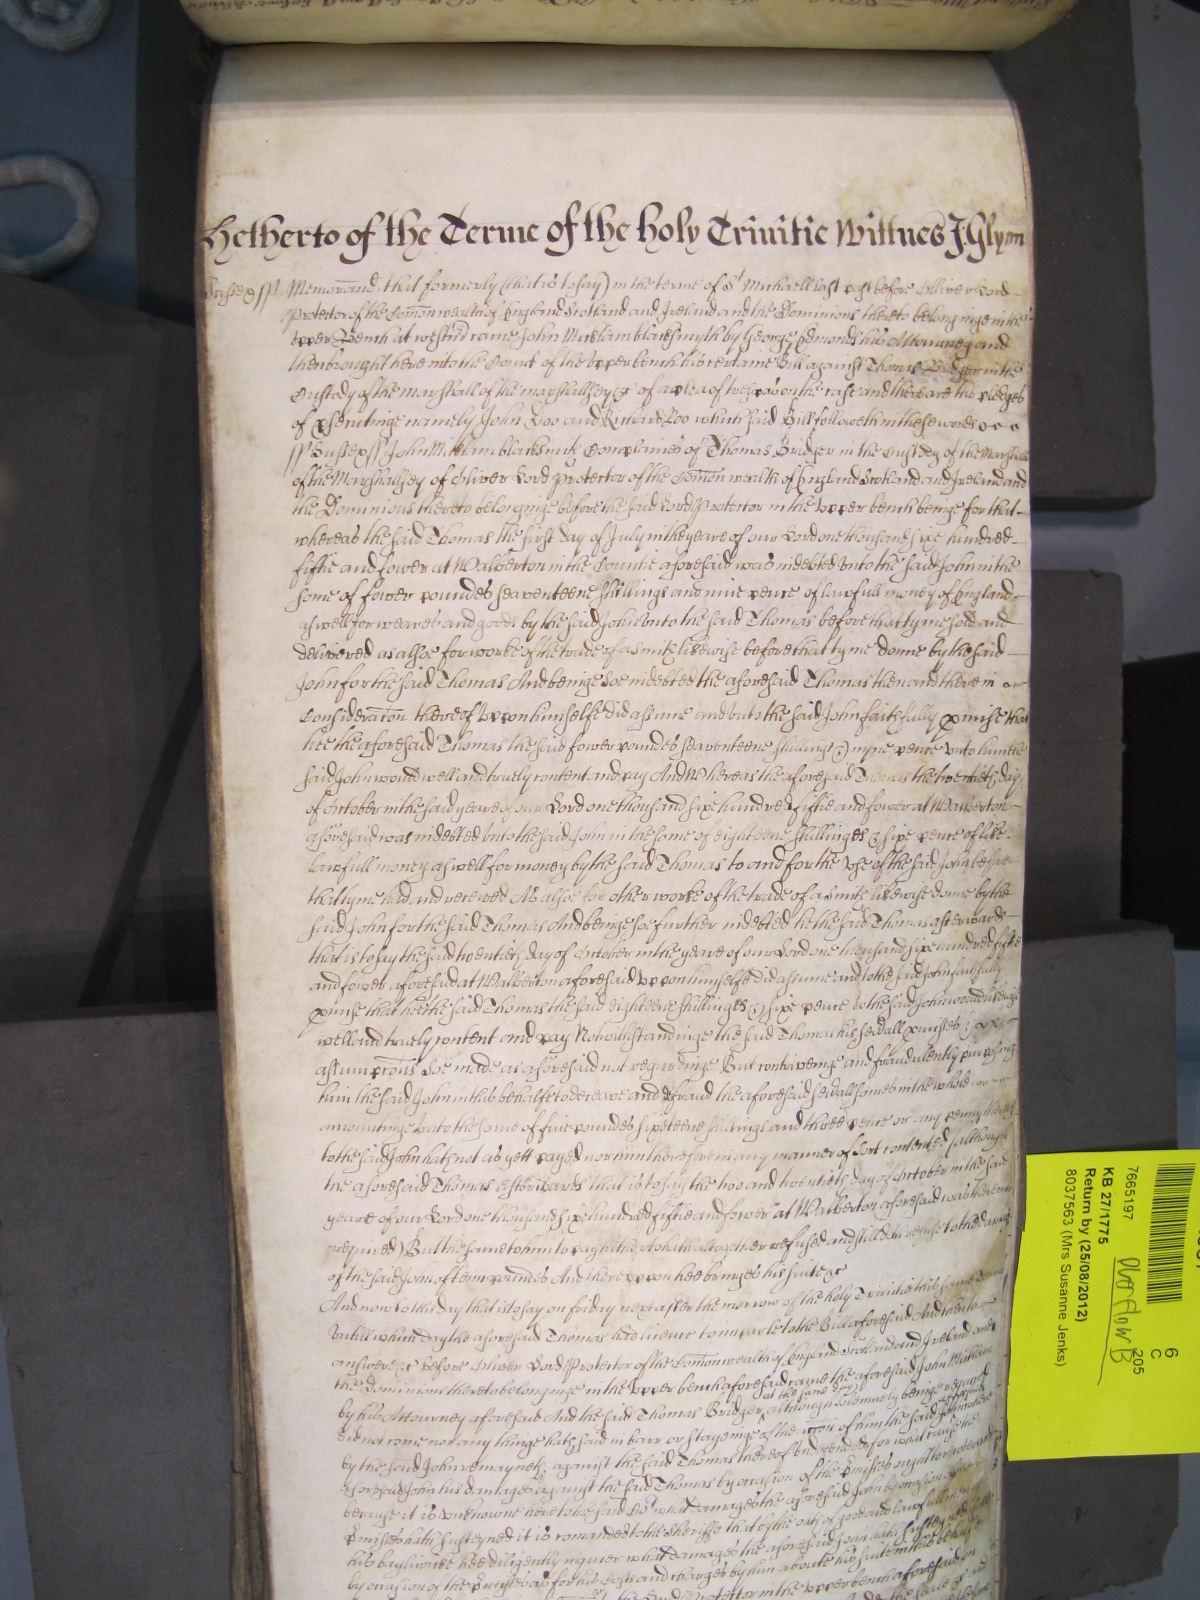 Hetherto of the Terme of the holy Trinitie Wittnes J: Glynn
Sussex ss Memorand that formerly (that is to say) in the terme of St Michaell last past before Olliver Lord
Protector of the Comonwealth of England Scotland and Ireland and the Dominions thereto belonginge in the
Upper Bench at westmr came John blacksmyth by George Edmonds his Attorney and
then brought here into the Court of the Upper bench his certaine Bill against Thomas Bridger in the
Custody of the marshall of the marshallsey &c of a plea of trespas on the case and there are the pledges
of psecutinge namely John Doo and Richard Roo which said Bill followeth in these words
ss Sussex ss John blacksmith Complaines of Thomas Bridger in the Custody of the Marshall
of the Marshallsey of Oliver Lord Protector of the Comon wealth of England Scotland and Ireland and
the Dominions thereto belonginge before the said Lord Protector in the Upper bench beinge for that
whereas the said Thomas the first day of July in the yeare of our Lord one thousand sixe hundred
fiftie and fower at Walberton in the Countie aforesaid was indebted unto the said John in the
some of fower poundes seaventeene shillings and nine pence of lawfull money of England
aswell for weares and goods by the said John unto the said Thomas before that tyme sold and
delivered as alsoe for worke of the trade of a smith likewise before that tyme donne by the said
John for the said Thomas And beinge soe indebted the aforesaid Thomas then and there in
Consideracon thereof Uppon himselfe did assume and unto the said John faithfully pmise that
hee the aforesaid Thomas the said fower poundes seaventeene shillings & nyne pence unto him the
said John would well and truely content and pay And Whereas the aforesaid Thomas the twentieth day
of October in the said yeare of our Lord one thousand sixe hundred fiftie and fower at Walberton
aforesaid was indebted unto the said John in the some of eighteene shillinges & sixe pence of like
lawfull money aswell for money by the said Thomas to and for the use of the said John before
that tyme had and receved As alsoe for other worke of the trade of a smith likewise donne by the
said John for the said Thomas And beinge soe further indebted he the said Thomas afterwards
that is to say the said twentieth day of October in the yeare of our Lord one thousand sixe hundred fiftie
and fower aforesaid at Walberton aforesaid Uppon himselfe did assume and to the said John faithfully
pmise that hee the said Thomas the said eighteene shillinges & sixe pence to the said John would likewise
well and truely content and pay Notwithstandinge the said Thomas his sevall pmises &
assumpcons soe made as aforesaid not regardinge But contriveinge and fraudulently purposing
him the said John in this behalfe to deceave and defraud the aforesaid sevall somes in the whole
amountinge unto the some of five poundes sixteene shillings and three pence or any penny thereof
to the said John hath not as yett payed nor him therefore in any manner of sort contented (although
the aforesaid Thomas afterwards that is to say the two and twentieth day of October in the said
yeare of our Lord one thousand sixe hundred fiftie and fower at Walberton aforesaid was thereunto
required) But the same to him to pay hitherto hath altogether refused and still doth refuse to the damage
of the said John of tenn poundes And thereuppon hee bringes his suite &c
And now to this day that is to say on friday next after the morrow of the holy Trinitie this same
Untill which day the aforesaid Thomas had licence to imparle to the Bill aforesaid And then to
answere &c before Oliver Lord Protector of the Comonwealth of England Scotland and Ireland and
the Dominions thereto belonginge in the Upper bench aforesaid came the aforesaid John
by his Attourney aforesaid And the said Thomas Bridger at the same day although solemnely beinge required
did not come nor any thinge hath said in barr or stayeinge of the accon of him the said John
by the said John remayneth against the said Thomas thereof undefended for which cause the
aforesaid John his damages against the said Thomas by occasion of the pmises ought to recover
because it is unknowne here to the said Court what damages the aforesaid John by occasion of the
pmises hath susteyned it is comanded to the Sheriffe that by the oath of good and lawfull men of
his baylywicke hee diligently inquier what damages the aforesaid John hath susteyned
by occasion of the pmises as for his costs and charges by him aboute his suite in this behalf
the Lord Protector in the Upper bench aforesaid on
7665197
KB 27/1775
Return by (25/08/2012)
8037563 (Mrs Susanne Jenks)
6
C
205